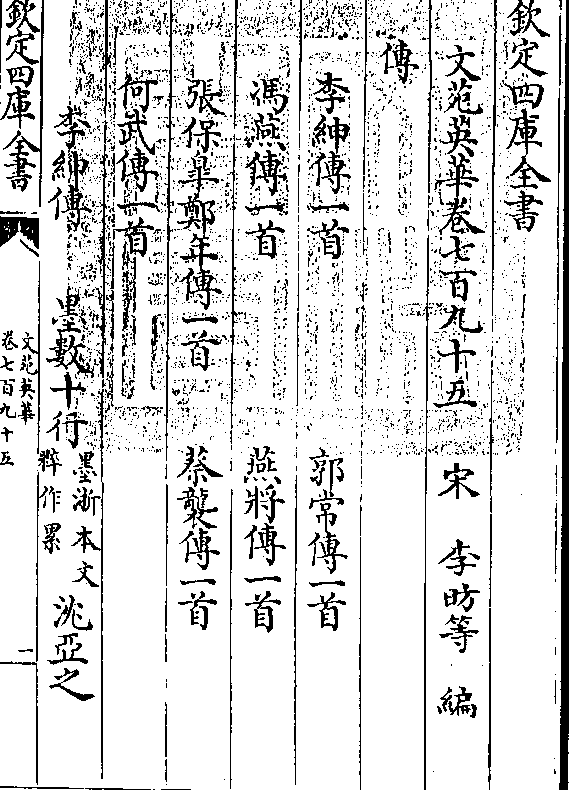 欽定四庫全書
文苑英華卷七百九十五 宋 李昉等 編
傳
李紳傳一首 郭常傳一首
馮燕傳一首 燕將傳一首
張保皐鄭年傳一首 蔡襲傳一首
何武傳一首
李紳傳 墨數十行 墨浙本文粹作累 沈亞之
欽定四庫全書
文苑英華
卷七百九十五
一